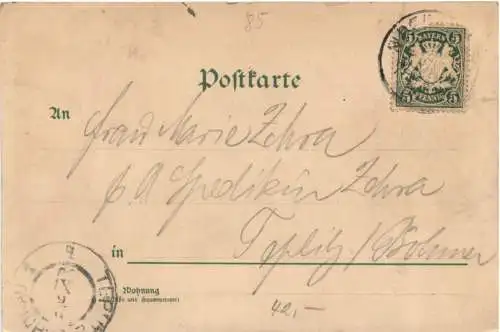 85
BAYERN
5 5
PFENNIG
5 5
Postkarte
An
Frau Marie Zehra
p A Spedition Zehra
in Teplitz / Böhmen
Wohnung
(Straße und Hausnummer)
42,-